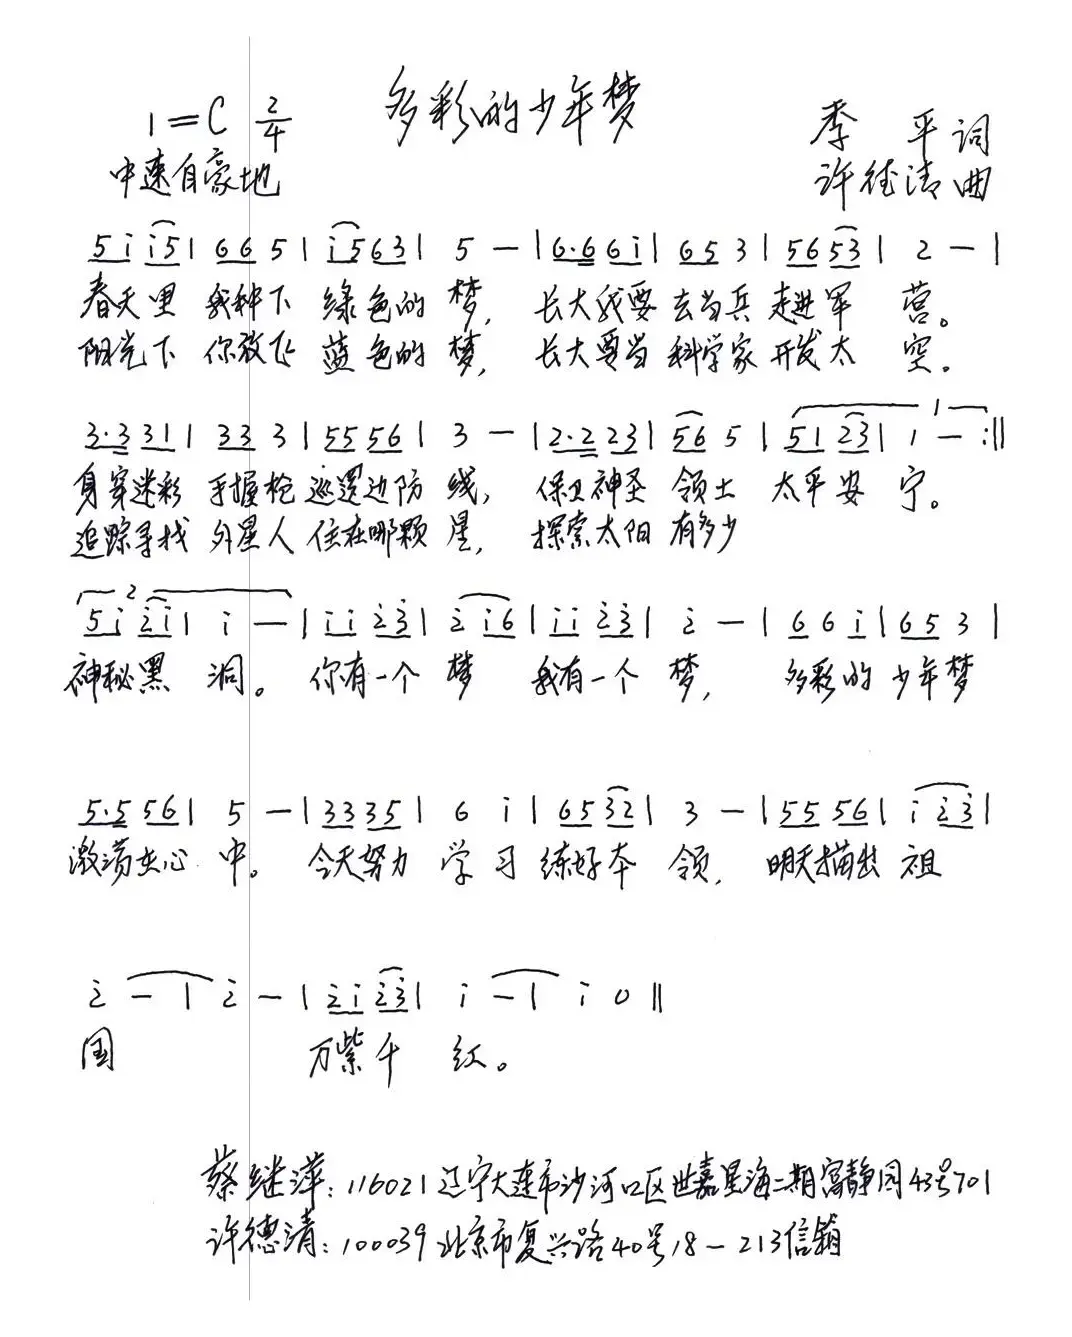 多彩的少年梦
1=C 2/4
季 平 词
中速自豪地
许德清 曲
5 i i5 | 6 6 5 | i 5 6 3 | 5 — | 6·6 6 i | 6 5 3 | 5 6 5 3 | 2 — |
春天里 我种下 绿色的 梦， 长大我要 去当兵 走进军 营。
阳光下 你放飞 蓝色的 梦， 长大要当 科学家 开发太 空。
3·3 3 1 | 3 3 3 | 5 5 5 6 | 3 — | 2·2 2 3 | 5 6 5 | 5 1 2 3 | 1 — :||
身穿迷彩 手握枪 巡逻边防 线， 保卫神圣 领土 太平安 宁。
追踪寻找 外星人 住在哪颗 星， 探索太阳 有多少
5 i 2 i | i — | i i 2 3 | 2 i 6 | i i 2 3 | 2 — | 6 6 i | 6 5 3 |
神秘黑 洞。 你有一个 梦 我有一个 梦， 多彩的 少年梦
5·5 5 6 | 5 — | 3 3 3 5 | 6 i | 6 5 3 2 | 3 — | 5 5 5 6 | i 2 3 |
激荡在心 中。 今天努力 学习 练好本 领， 明天描出 祖
2 — | 2 — | 2 i 2 3 | i — | i 0 ||
国 万紫千 红。
蔡继萍：116021辽宁大连市沙河口区世嘉星海二期富静园43号701
许德清：100039北京市复兴路40号18－213信箱